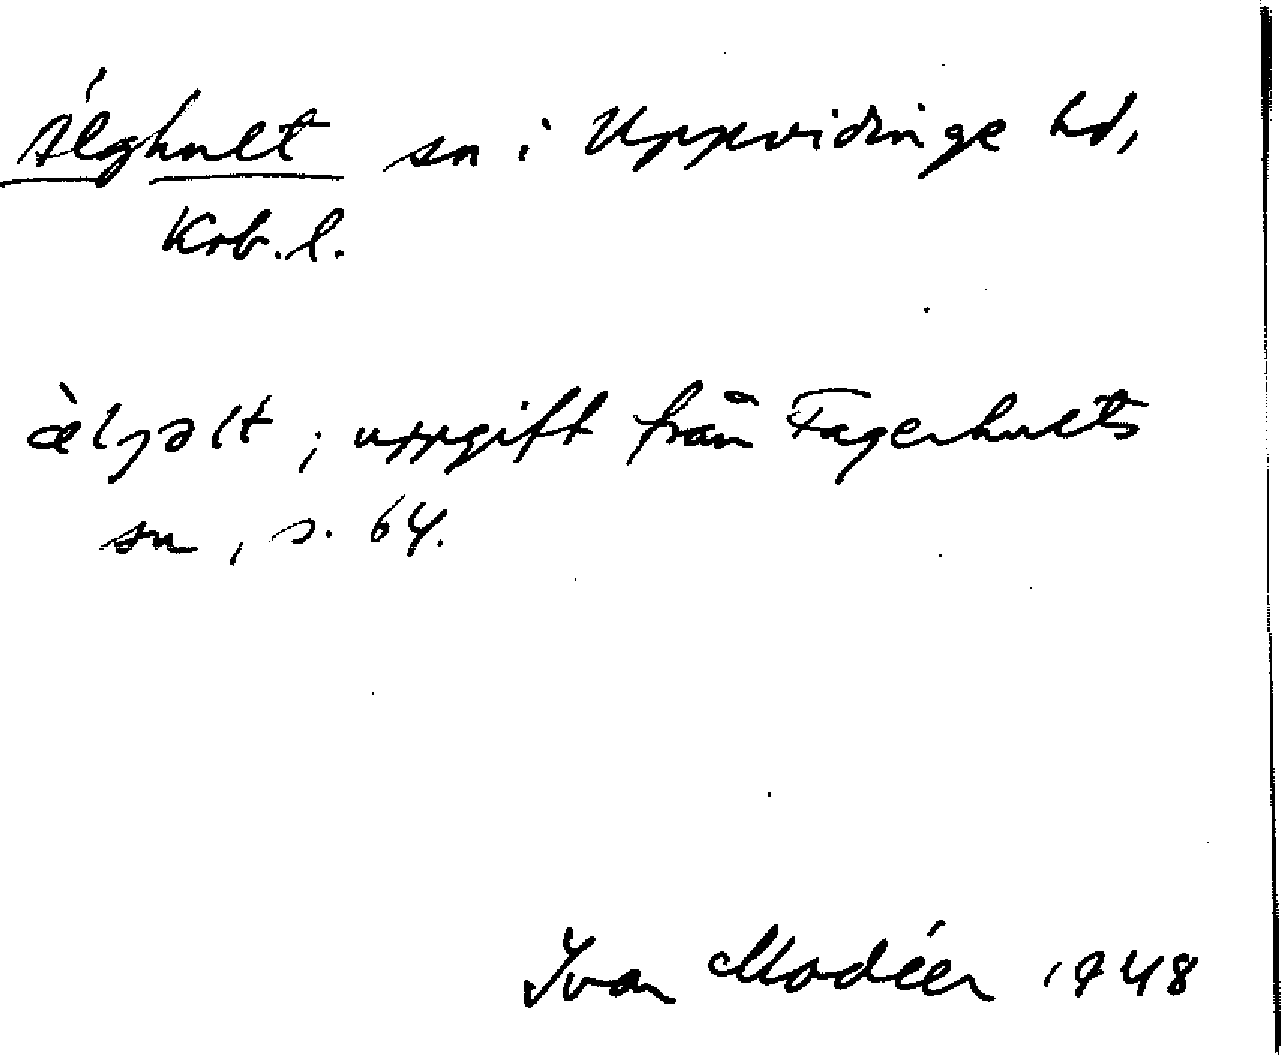 Älghult sn i Uppvidinge hd,
Krb. l.
æ̀ljəlt ; uppgift från Fagerhults
sn, s. 64.
Ivar Modéer 1948